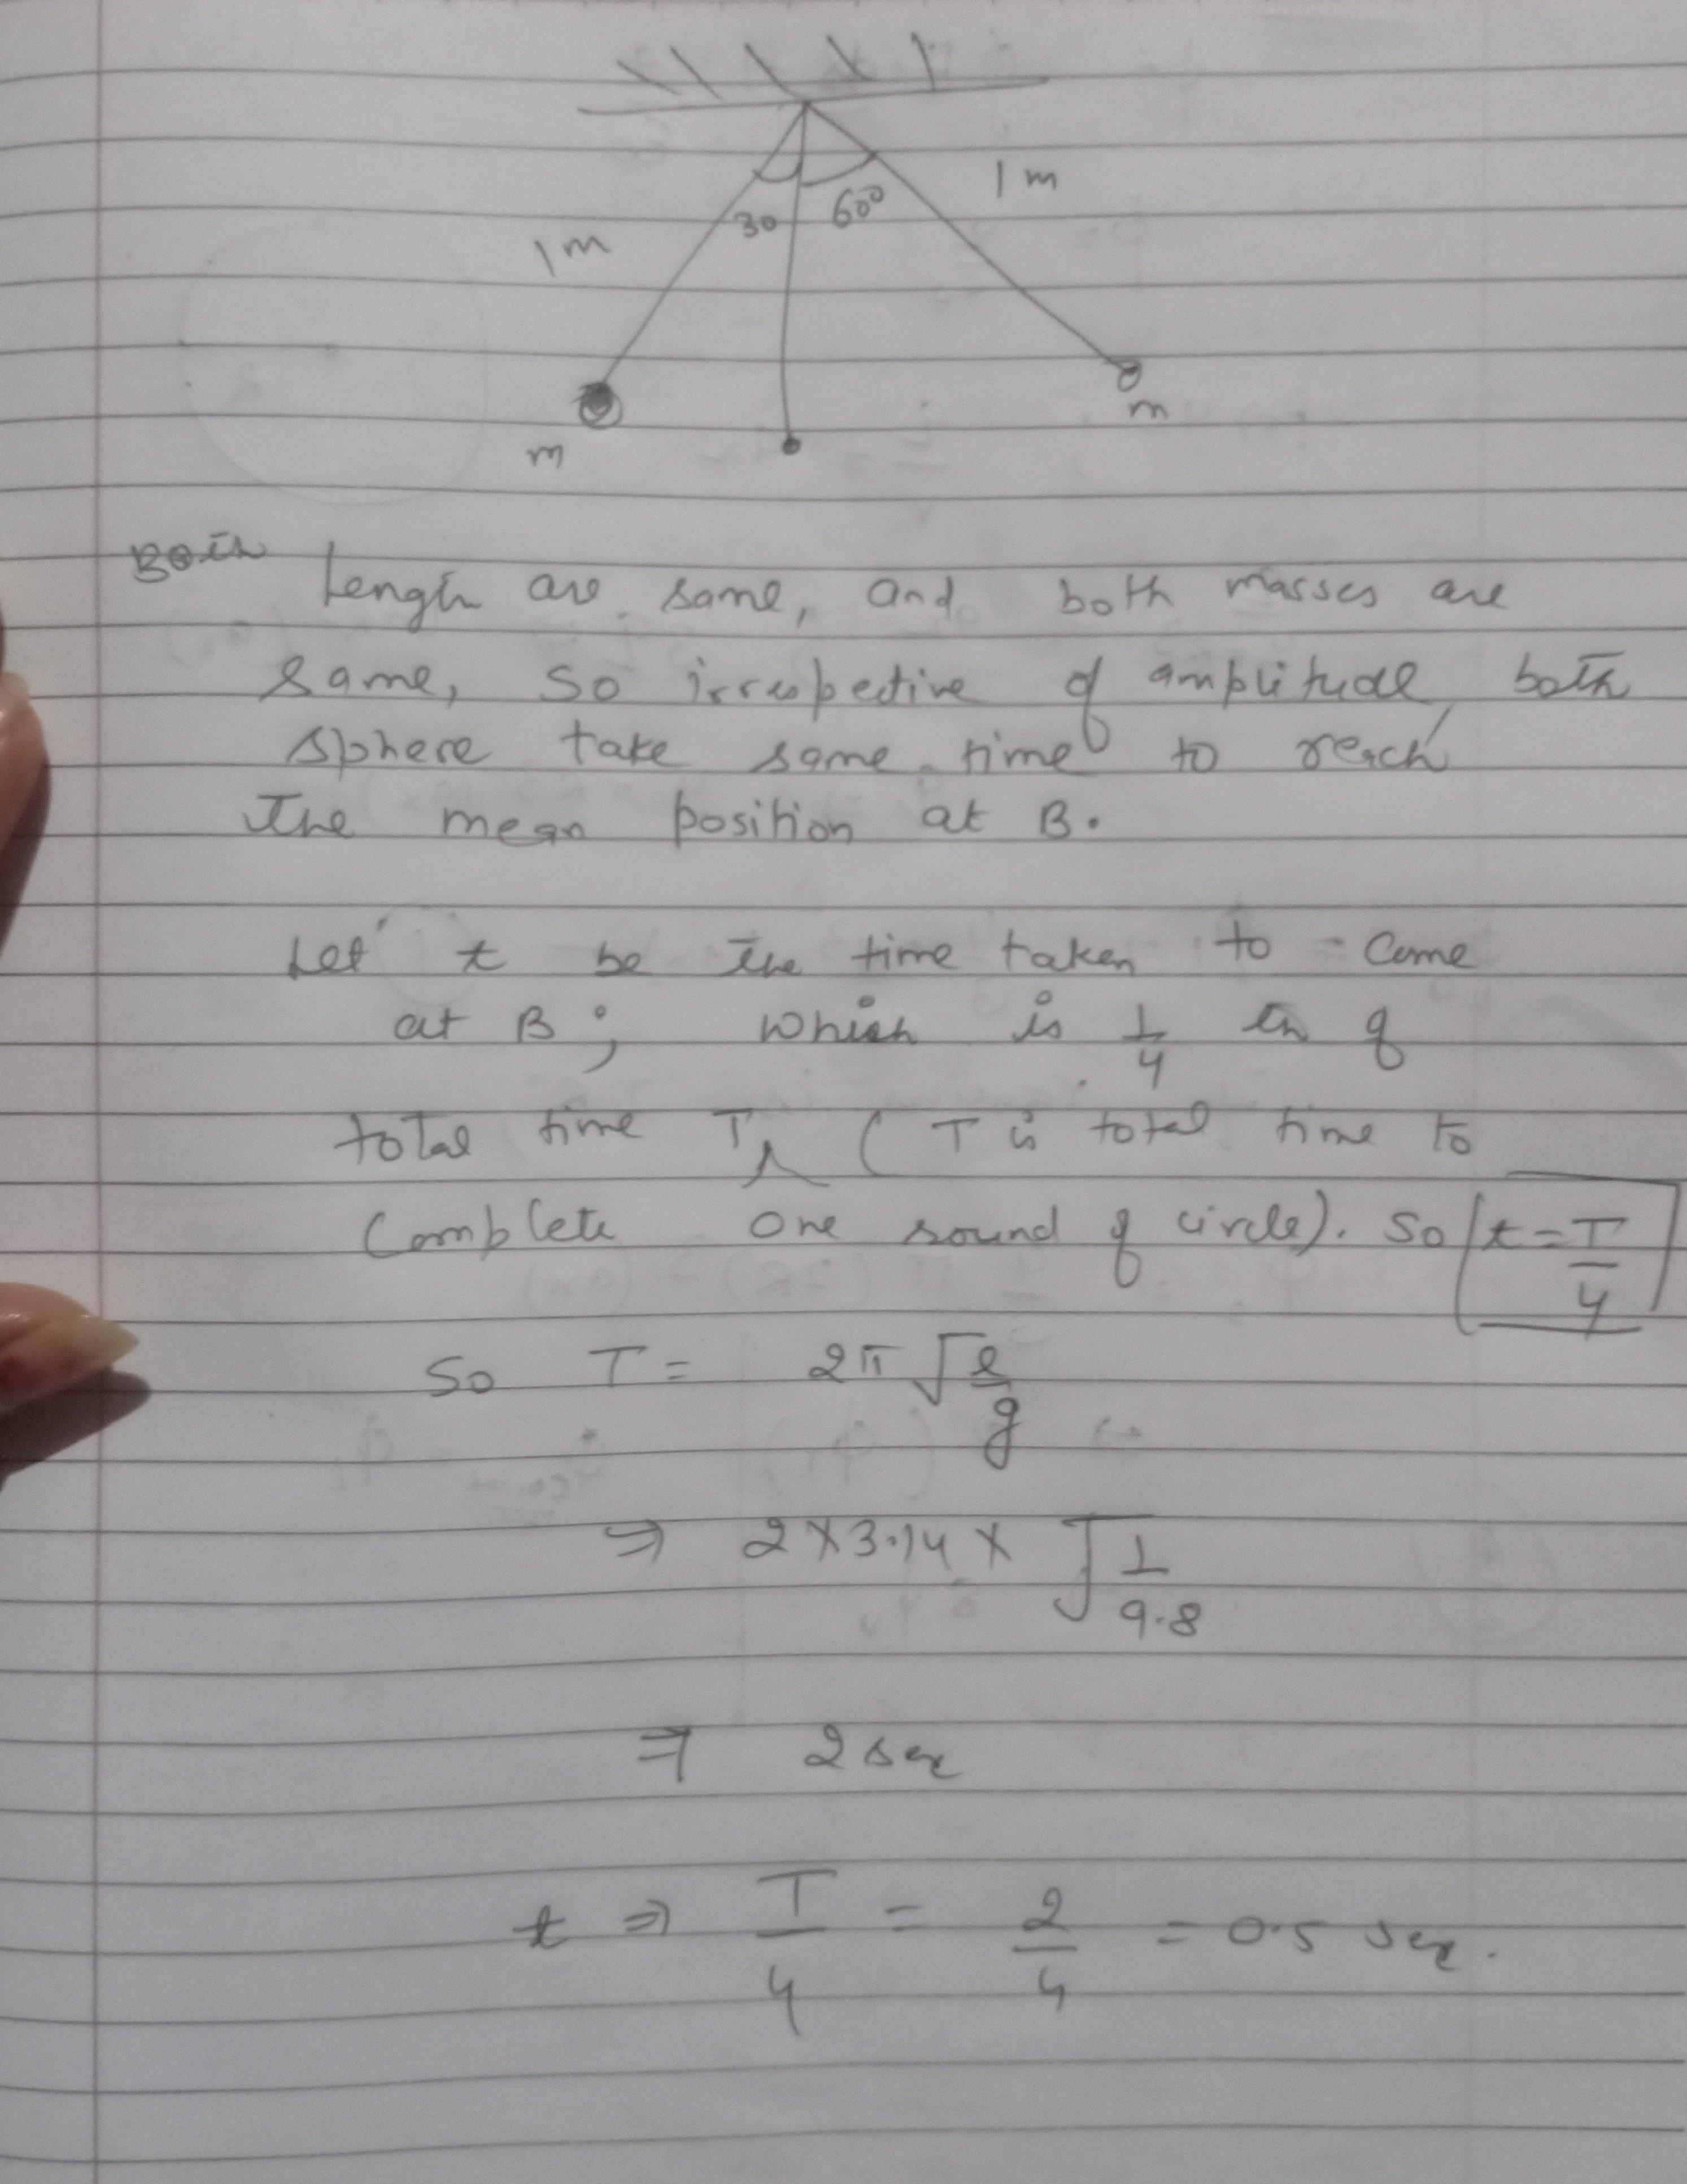 1 m
30
60°
1 m
m
m
Both Length are same, and both masses are
same, so irrespective of amplitude, both
sphere take same time to reach
The mean position at B.
Let t be the time taken to come
at B; which is 1/4 th of
total time T, ( T is total time to
Complete one round of circle). So t = T/4
So T = 2π √(l/g)
⇒ 2 × 3.14 × √(1/9.8)
⇒ 2 sec
t ⇒ T/4 = 2/4 = 0.5 sec.